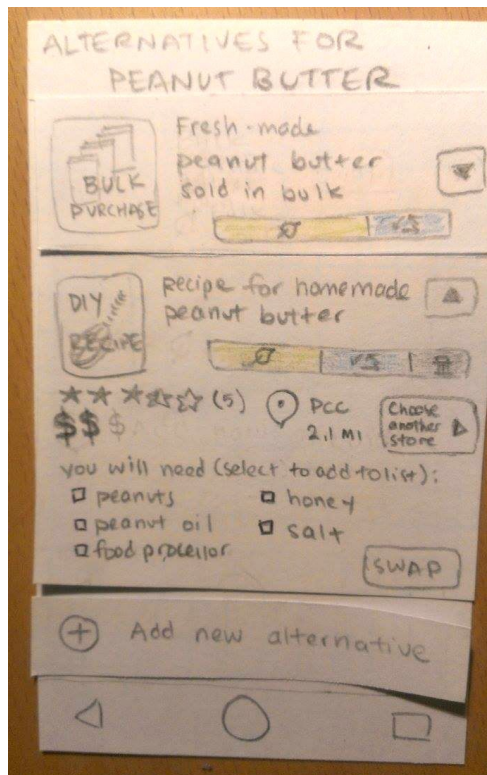 ALTERNATIVES FOR
PEANUT BUTTER
BULK
PURCHASE
Fresh-made
peanut butter
sold in bulk
DIY
RECIPE
recipe for homemade
peanut butter
(5)
PCC
2.1 MI
Choose
another
store
$$$
you will need (select to add to list):
peanuts
honey
peanut oil
salt
food processor
SWAP
Add new alternative